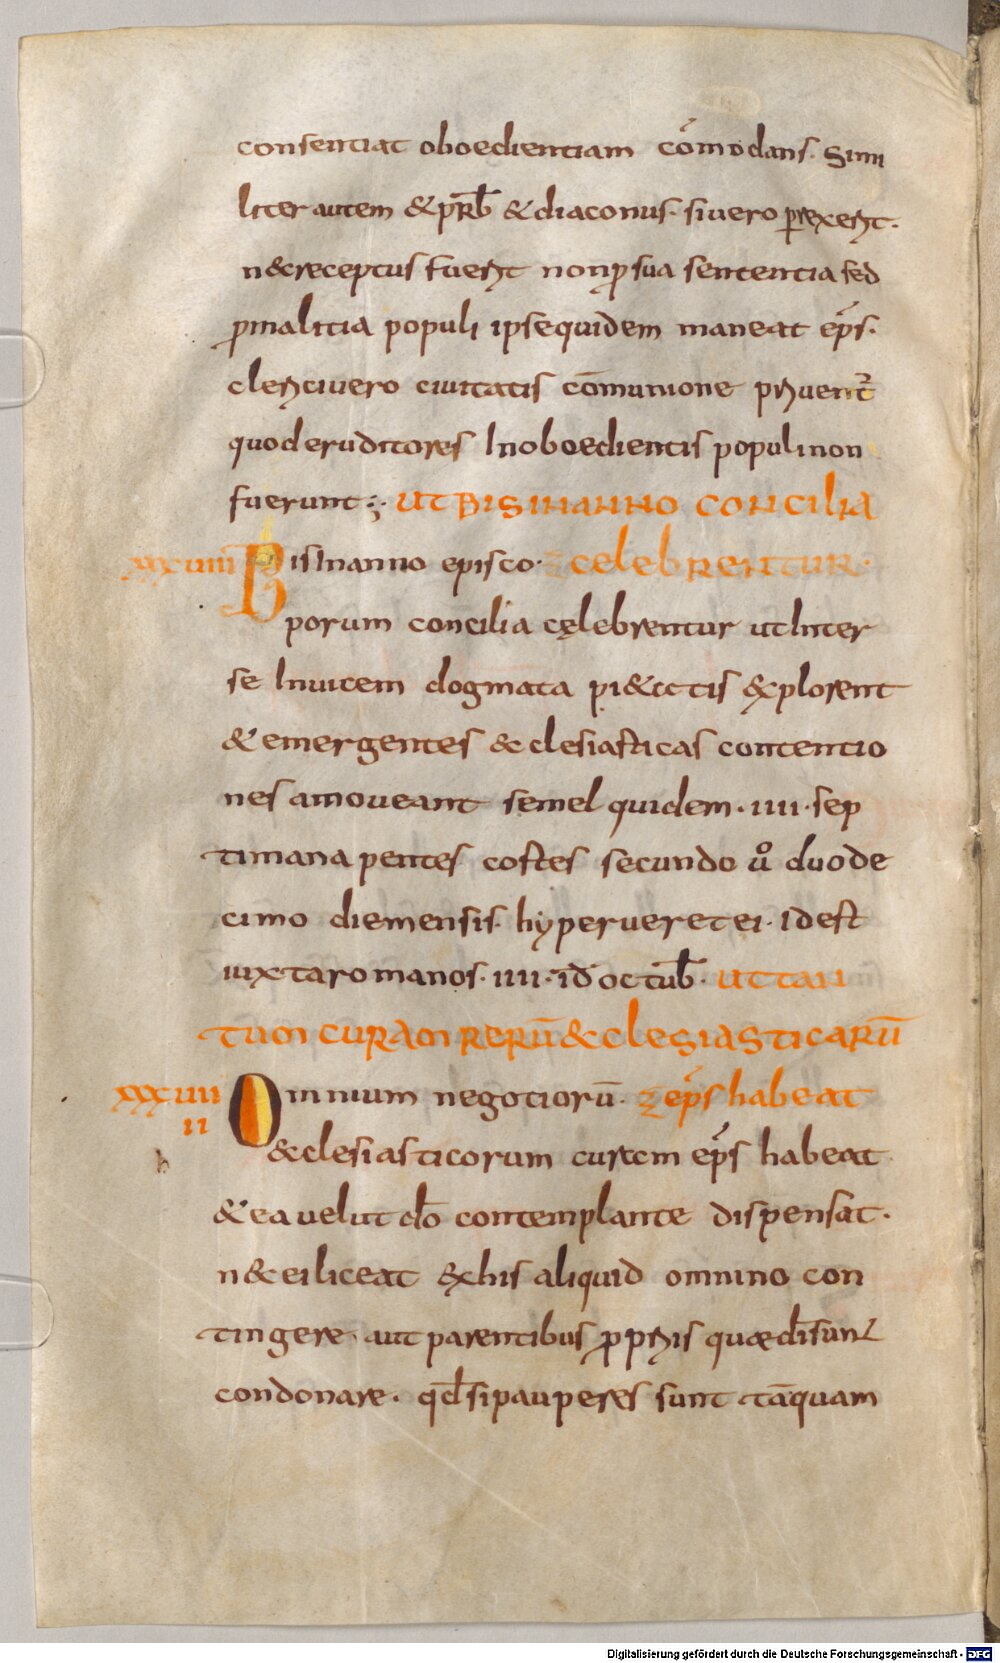 consentiat oboedientiam cōmodans. Simi
liter autem & prb̄ & diaconus. si uero prexerit.
n& receptus fuerit non ꝓ sua sententia sed
ꝓ malitia populi ipse quidem maneat ep̄s.
clerici uero ciuitatis cōmunione priuent᷑
quod eruditores Inoboedientis populi non
fuerunt; UT BIS IN ANNO CONCILIA
XXXVIII Bis In anno episco. CELEBRENTUR.
porum concilia cęlebrentur ut Inter
se Inuicem dogmata pi&atis explorent
& emergentes &clesiasticas contentio
nes amoueant semel quidem. IIII. sep
timana pentecostes secundo ůo duode
cimo die mensis. hyperueretei. Id est
iuxta romanos. IIII. id̄ octub̄. UT TAN
TUM CURAM RERŪ &CLESIASTICARŪ
XXXVIIII Omnium negotiorū. ep̄s habeat
II &clesiasticorum curem ep̄s habeat
& ea uelut dō contemplante dispensat.
n& ei liceat ex his aliquid omnino con
tingere. aut parentibus ꝓpriis quae dī sunt
condonare. qd̄ si pauperes sunt tāquam
Digitalisierung gefördert durch die Deutsche Forschungsgemeinschaft - DFG